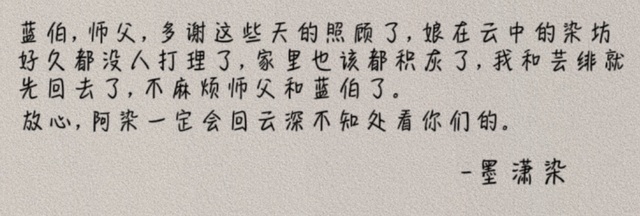 蓝伯,师父,多谢这些天的照顾了,娘在云中的染坊
好久都没人打理了,家里也该都积灰了,我和芸绯就
先回去了,不麻烦师父和蓝伯了。
放心,阿染一定会回云深不知处看你们的。
-墨潇染